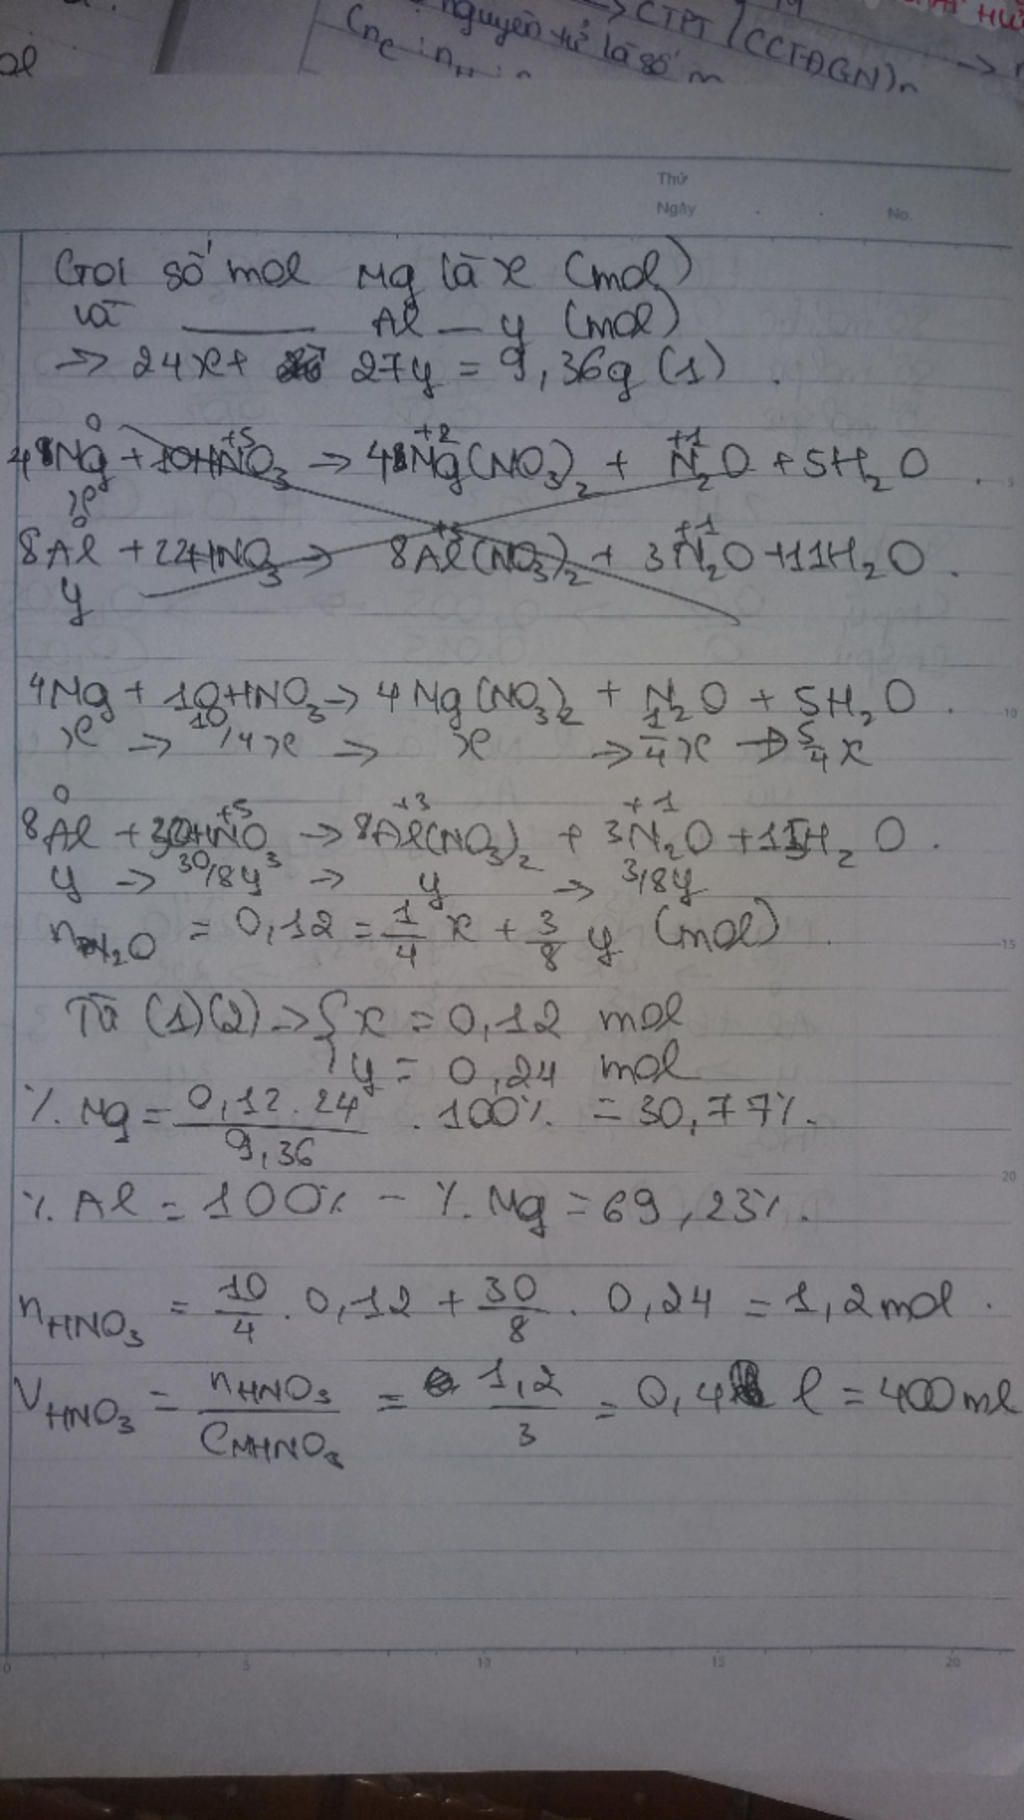 ol
nguyên tử là số n
(nC : nH :
→ CTPT (CTĐGN)n
Thứ
Ngày
No.
Gọi số mol Mg là x (mol)
và ——— Al — y (mol)
=> 24x + 27y = 9,36g (1).
4Mg + 10HNO3 → 4Mg(NO3)2 + N2O + 5H2O.
0 +5 +2 +1
x
0 +3 +1
8Al + 22HNO3 → 8Al(NO3)2 + 3N2O + 11H2O.
y
4Mg + 10HNO3 → 4Mg(NO3)2 + N2O + 5H2O.
x → 10/4x → x → 1/4 x → 5/4 x
0 +5 +3 +1
8Al + 30HNO3 → 8Al(NO3)2 + 3N2O + 15H2O.
y → 30/8y → y → 3/8y
nN2O = 0,12 = 1/4 x + 3/8 y (mol).
Từ (1)(2) → { x = 0,12 mol
y = 0,24 mol
% Mg = 0,12.24 / 9,36 . 100% = 30,77%.
% Al = 100% - % Mg = 69,23%.
nHNO3 = 10/4 . 0,12 + 30/8 . 0,24 = 1,2 mol.
VHNO3 = nHNO3 / CMHNO3 = 1,2 / 3 = 0,4 l = 400 ml
5
10
15
20
0 5 10 15 20